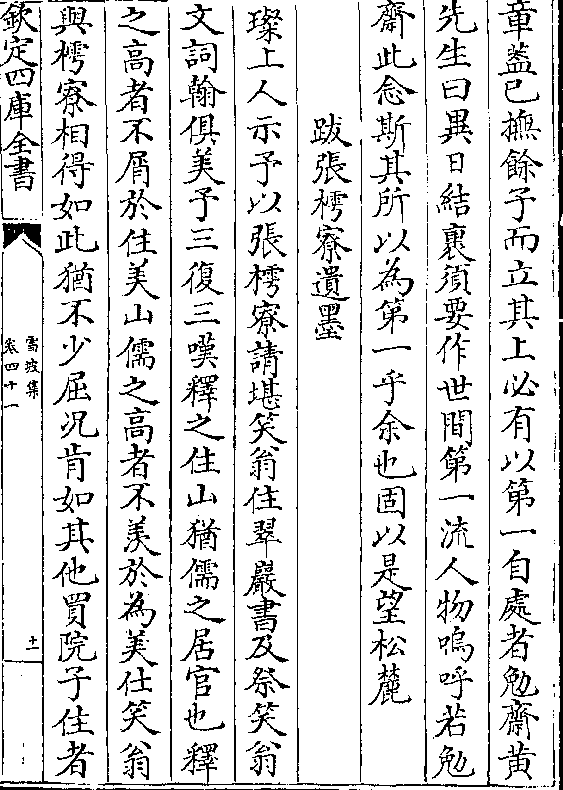 章蓋已撫餘子而立其上必有以第一自處者勉齋黄
先生曰異日結裹須要作世間第一流人物嗚呼若勉
齋此念斯其所以為第一乎余也固以是望松麓
跋張樗寮遺墨
璨上人示予以張樗寮請堪笑翁住翠巖書及祭笑翁
文詞翰俱美予三復三嘆釋之住山猶儒之居官也釋
之高者不屑於住美山儒之高者不羨於為美仕笑翁
與樗寮相得如此猶不少屈况肯如其他買院子住者
欽定四庫全書
雪坡集
卷四十一
十一